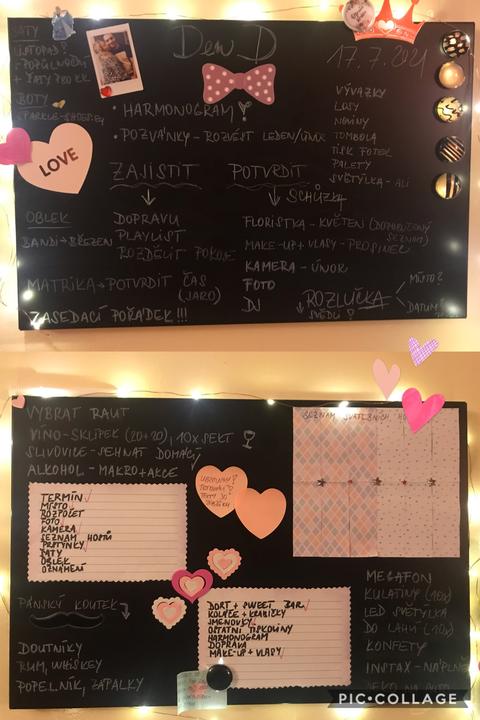 Den D
17.7.2021
ŠATY
LISTOPAD?
+ ŠATY PRO KK
BOTY
SPARKLE-SHOES.EU
LOVE
• HARMONOGRAM
• POZVÁNKY - ROZVÉST LEDEN/ÚNOR
VÝVAZKY
LOSY
NOVINY
TOMBOLA
TISK FOTEK
PALETY
SVĚTÝLKA - ALI
ZAJISTIT
DOPRAVU
PLAYLIST
ROZDĚLIT POKOJE
POTVRDIT
SCHŮZKA
FLORISTKA - KVĚTEN (DOPODROBNÝ SEZNAM)
MAKE-UP + VLASY - PROSINEC
KAMERA - ÚNOR
FOTO
DJ
OBLEK
BANDI → BŘEZEN
MATRIKA → POTVRDIT ČAS
(JARO)
ZASEDACÍ POŘÁDEK!!!
ROZLUČKA
MÍSTO?
DATUM?
SVĚDCI?
VYBRAT RAUT
VÍNO - SKLÍPEK (20+20), 10X SEKT
SLIVOVICE - SEHNAT DOMÁCÍ
ALKOHOL - MAKRO + AKCE
TERMÍN
MÍSTO
ROZPOČET
FOTO
KAMERA
SEZNAM HOSTŮ
PRSTÝNKY
ŠATY
OBLEK
OZNÁMENÍ
PÁNSKÝ KOUTEK
DOUTNÍKY
RUM, WHISKEY
POPELNÍK, ZÁPALKY
DORT + SWEET BAR
KOLÁČE + KRABIČKY
JMENOVKY
OSTATNÍ TISKOVINY
HARMONOGRAM
DOPRAVA
MAKE-UP + VLASY
SEZNAM SVATEBNÍCH
MEGAFON
KULATINY (10x)
LED SVĚTÝLKA
DO LAHVÍ (10x)
KONFETY
INSTAX - NÁPLNĚ
PIC•COLLAGE